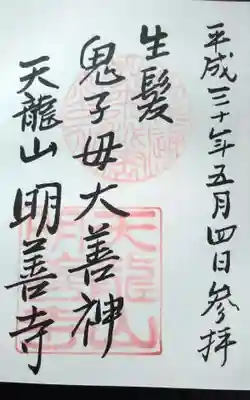 平成三十年五月四日参拝
生髪
鬼子母大善神
天龍山 明善寺